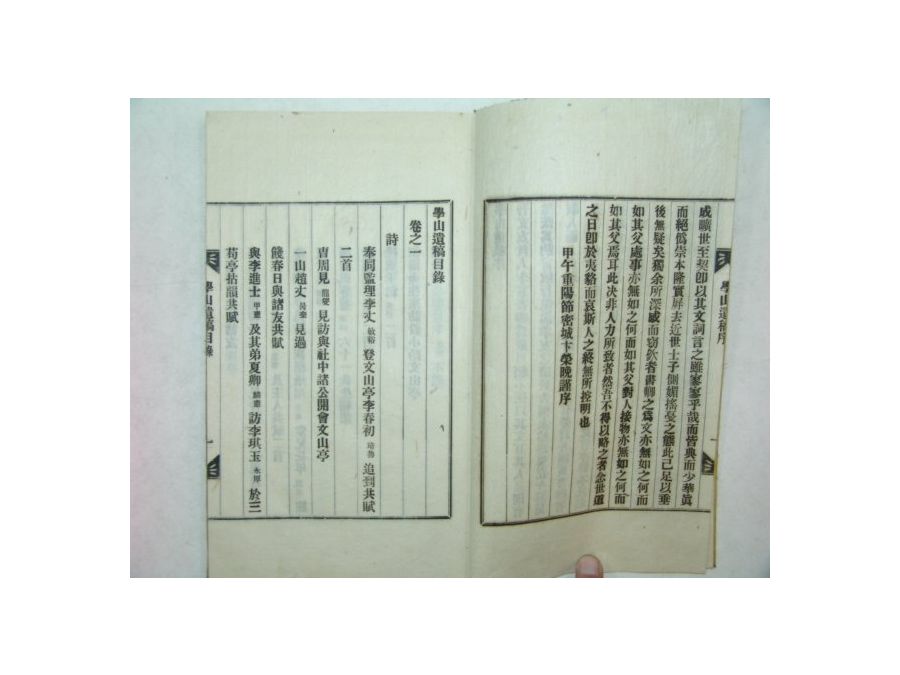 成曠世至契卽以其文詞言之雖寥寥乎哉而皆典而少華眞
而絕僞崇本隆實屛去近世士子側媚搖蔓之態此已足以垂
後無疑矣獨余所深感而竊欽者書卿之爲文亦無如之何而
如其父處事亦無如之何而如其父對人接物亦無如之何而
如其父焉耳此決非人力所致者然吾不得以略之者念世道
之日卽於夷貉而哀斯人之終無所控明也
甲午重陽節密城卞榮晚謹序
學山遺稿序
一
學山遺稿目錄
卷之一
詩
奉同監理李丈 登文山亭李春初 追到共賦
二首
曺周見 見訪與社中諸公開會文山亭
一山趙丈 見過
餞春日與諸友共賦
與李進士 及其弟夏卿 訪李琪玉 於三
苟亭拈韻共賦
學山遺稿目錄
一